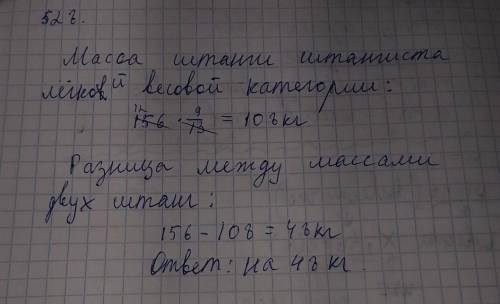 528.
Масса штанги штангиста
лёгковй весовой категории:
12
156 · 9/13 = 108 кг
Разница между массами
двух штанг:
156 - 108 = 48 кг
Ответ: на 48 кг.